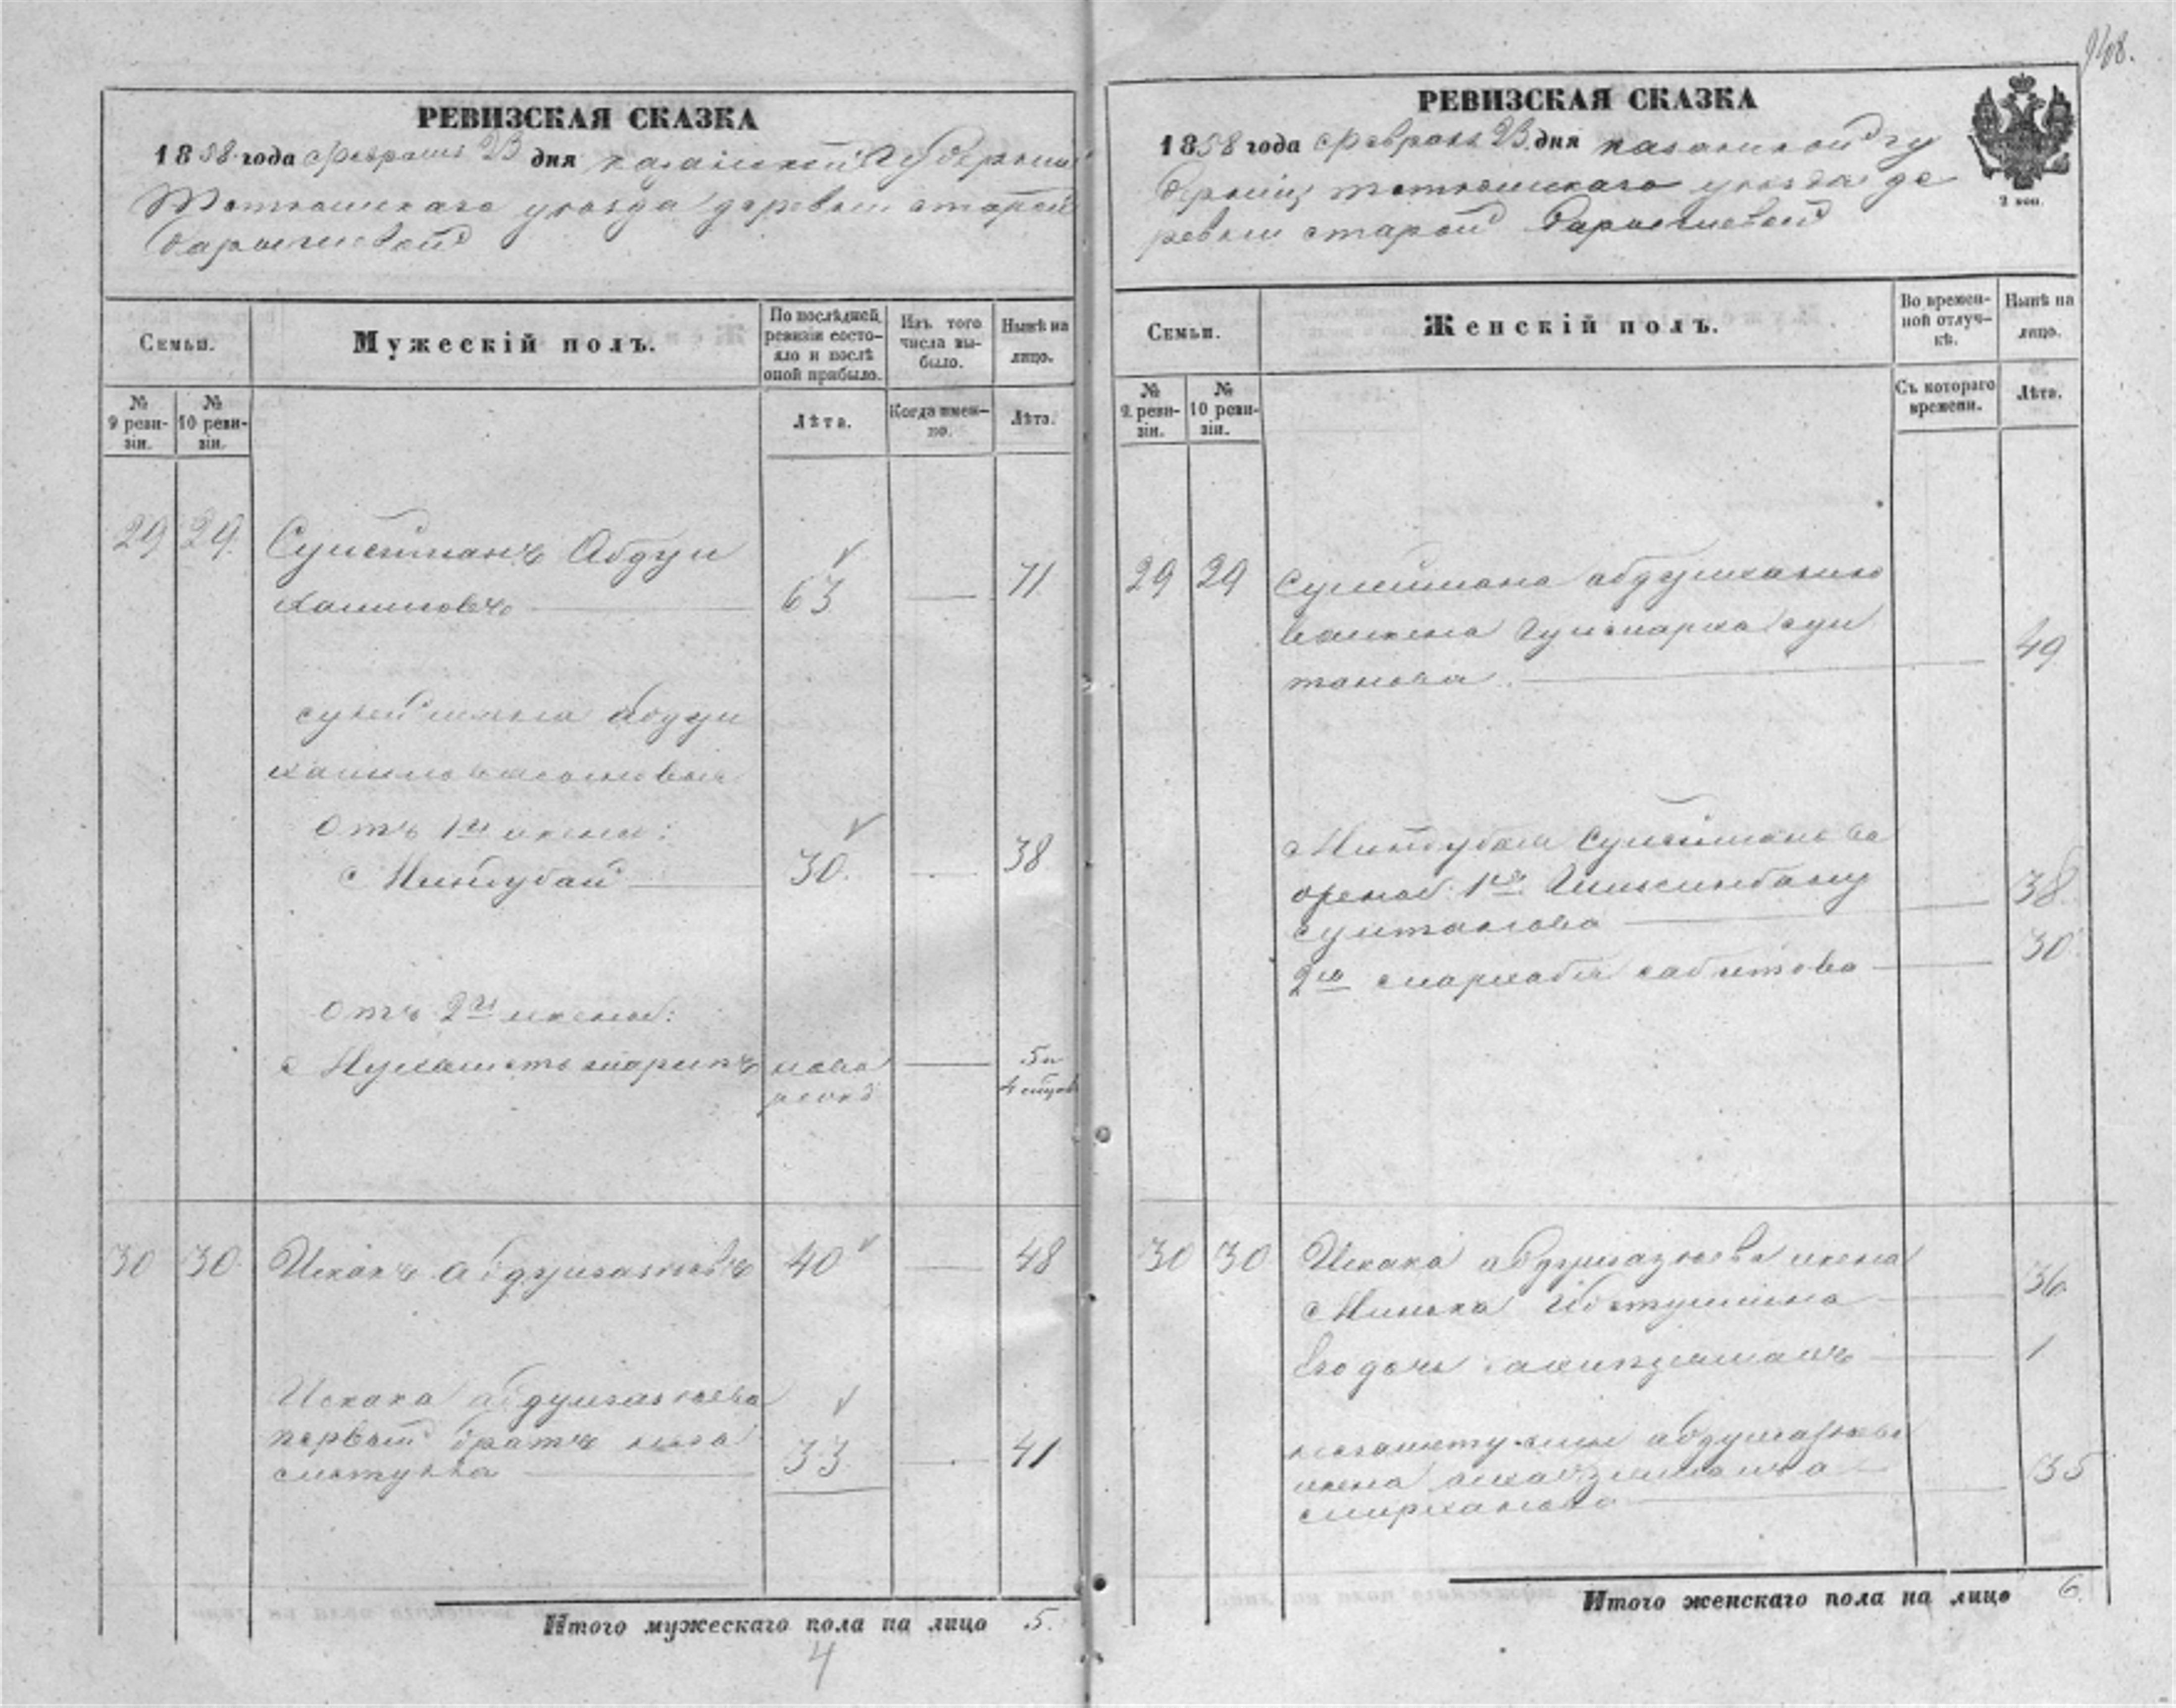 148.
РЕВИЗСКАЯ СКАЗКА
1858 года февраля 23 дня казанской губернии
Тетюшскаго уезда деревни старой
барышевой
Семьи.
Мужескій полъ.
По послѣдней ревизіи состояло и послѣ оной прибыло.
Изъ того числа выбыло.
Нынѣ на лицо.
№ 9 ревизіи.
№ 10 ревизіи.
Лѣта.
Когда именно.
Лѣта.
29 29 Сулейманъ Абдул
халиловъ 63 71
сулеймана абдул
халилова сыновья
отъ 1й жены:
Миндубай 30 38
отъ 2й жены:
Мухаметшарипъ ново 5 и
рожд 4 месяц
30 30 Исхакъ абдулгазиевъ 40 48
Исхака абдулгазиева
первый братъ
33 41
Итого мужескаго пола на лицо 5.
4
РЕВИЗСКАЯ СКАЗКА
1858 года февраля 23 дня казанской гу
берніи тетюшскаго уезда де
ревни старой барышевой
2 коп.
Семьи.
Женскій полъ.
Во временной отлучкѣ.
Нынѣ на лицо.
№ 9 ревизіи.
№ 10 ревизіи.
Съ котораго времени.
Лѣта.
29 29 Сулеймана абдулхалило
ва жена сул
танова 49
Миндубая Сулейманова
жены 1я
султанова 38
2я сабитова 30
30 30 Исхака абдулгазиева жена
36
Его дочь 1
абдулгазиева
жена
35
Итого женскаго пола на лицо 6